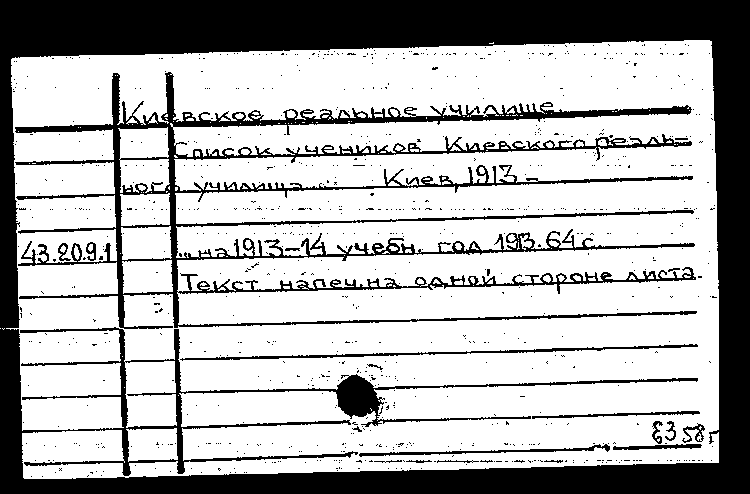 Киевское реальное училище.
Список учеников Киевского реаль-
ного училища... Киев, 1913 -
43.20.9.1 ...на 1913-14 учебн. год 1913. 64 с.
Текст напеч. на одной стороне листа.
58г